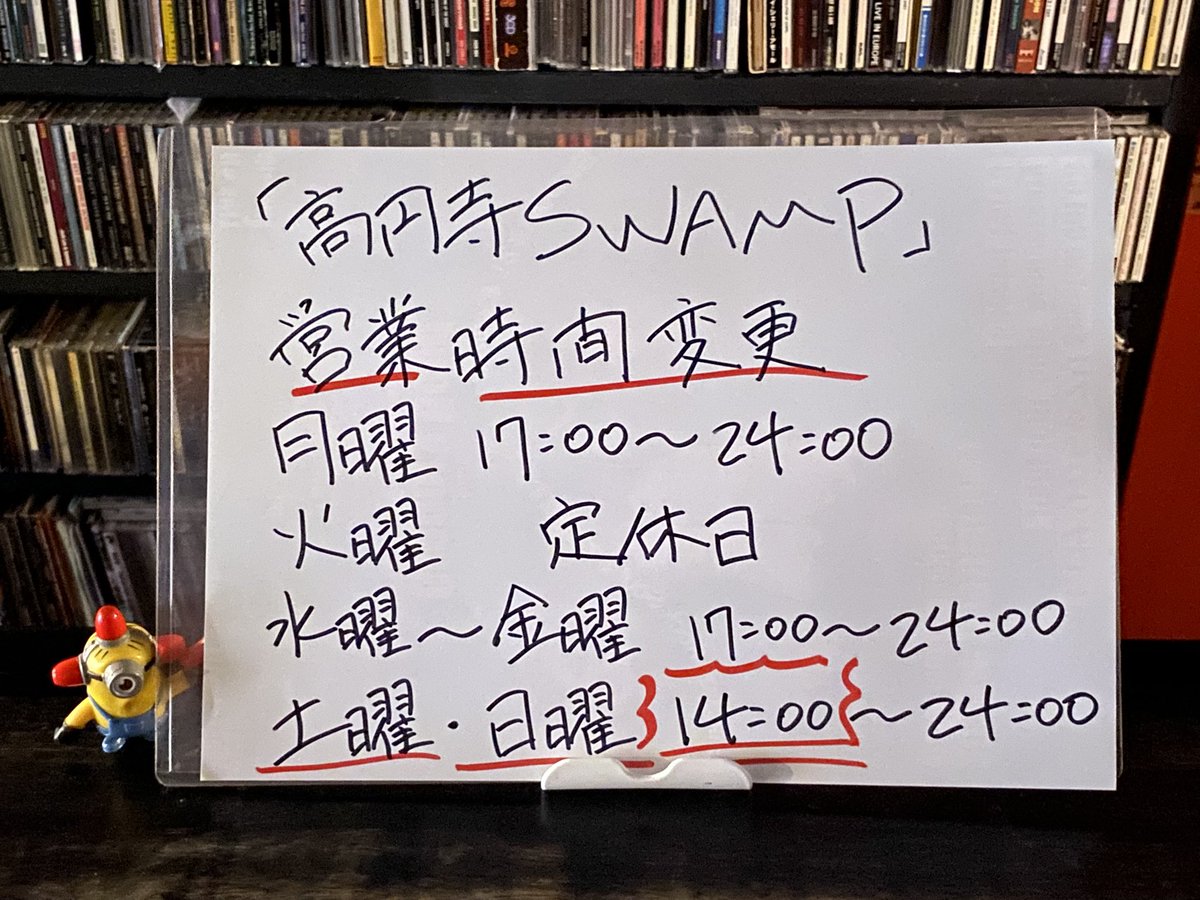 LIVE IN EUROPE
「高円寺SWAMP」
営業時間変更
月曜 17:00〜24:00
火曜 定休日
水曜〜金曜 17:00〜24:00
土曜・日曜 14:00〜24:00